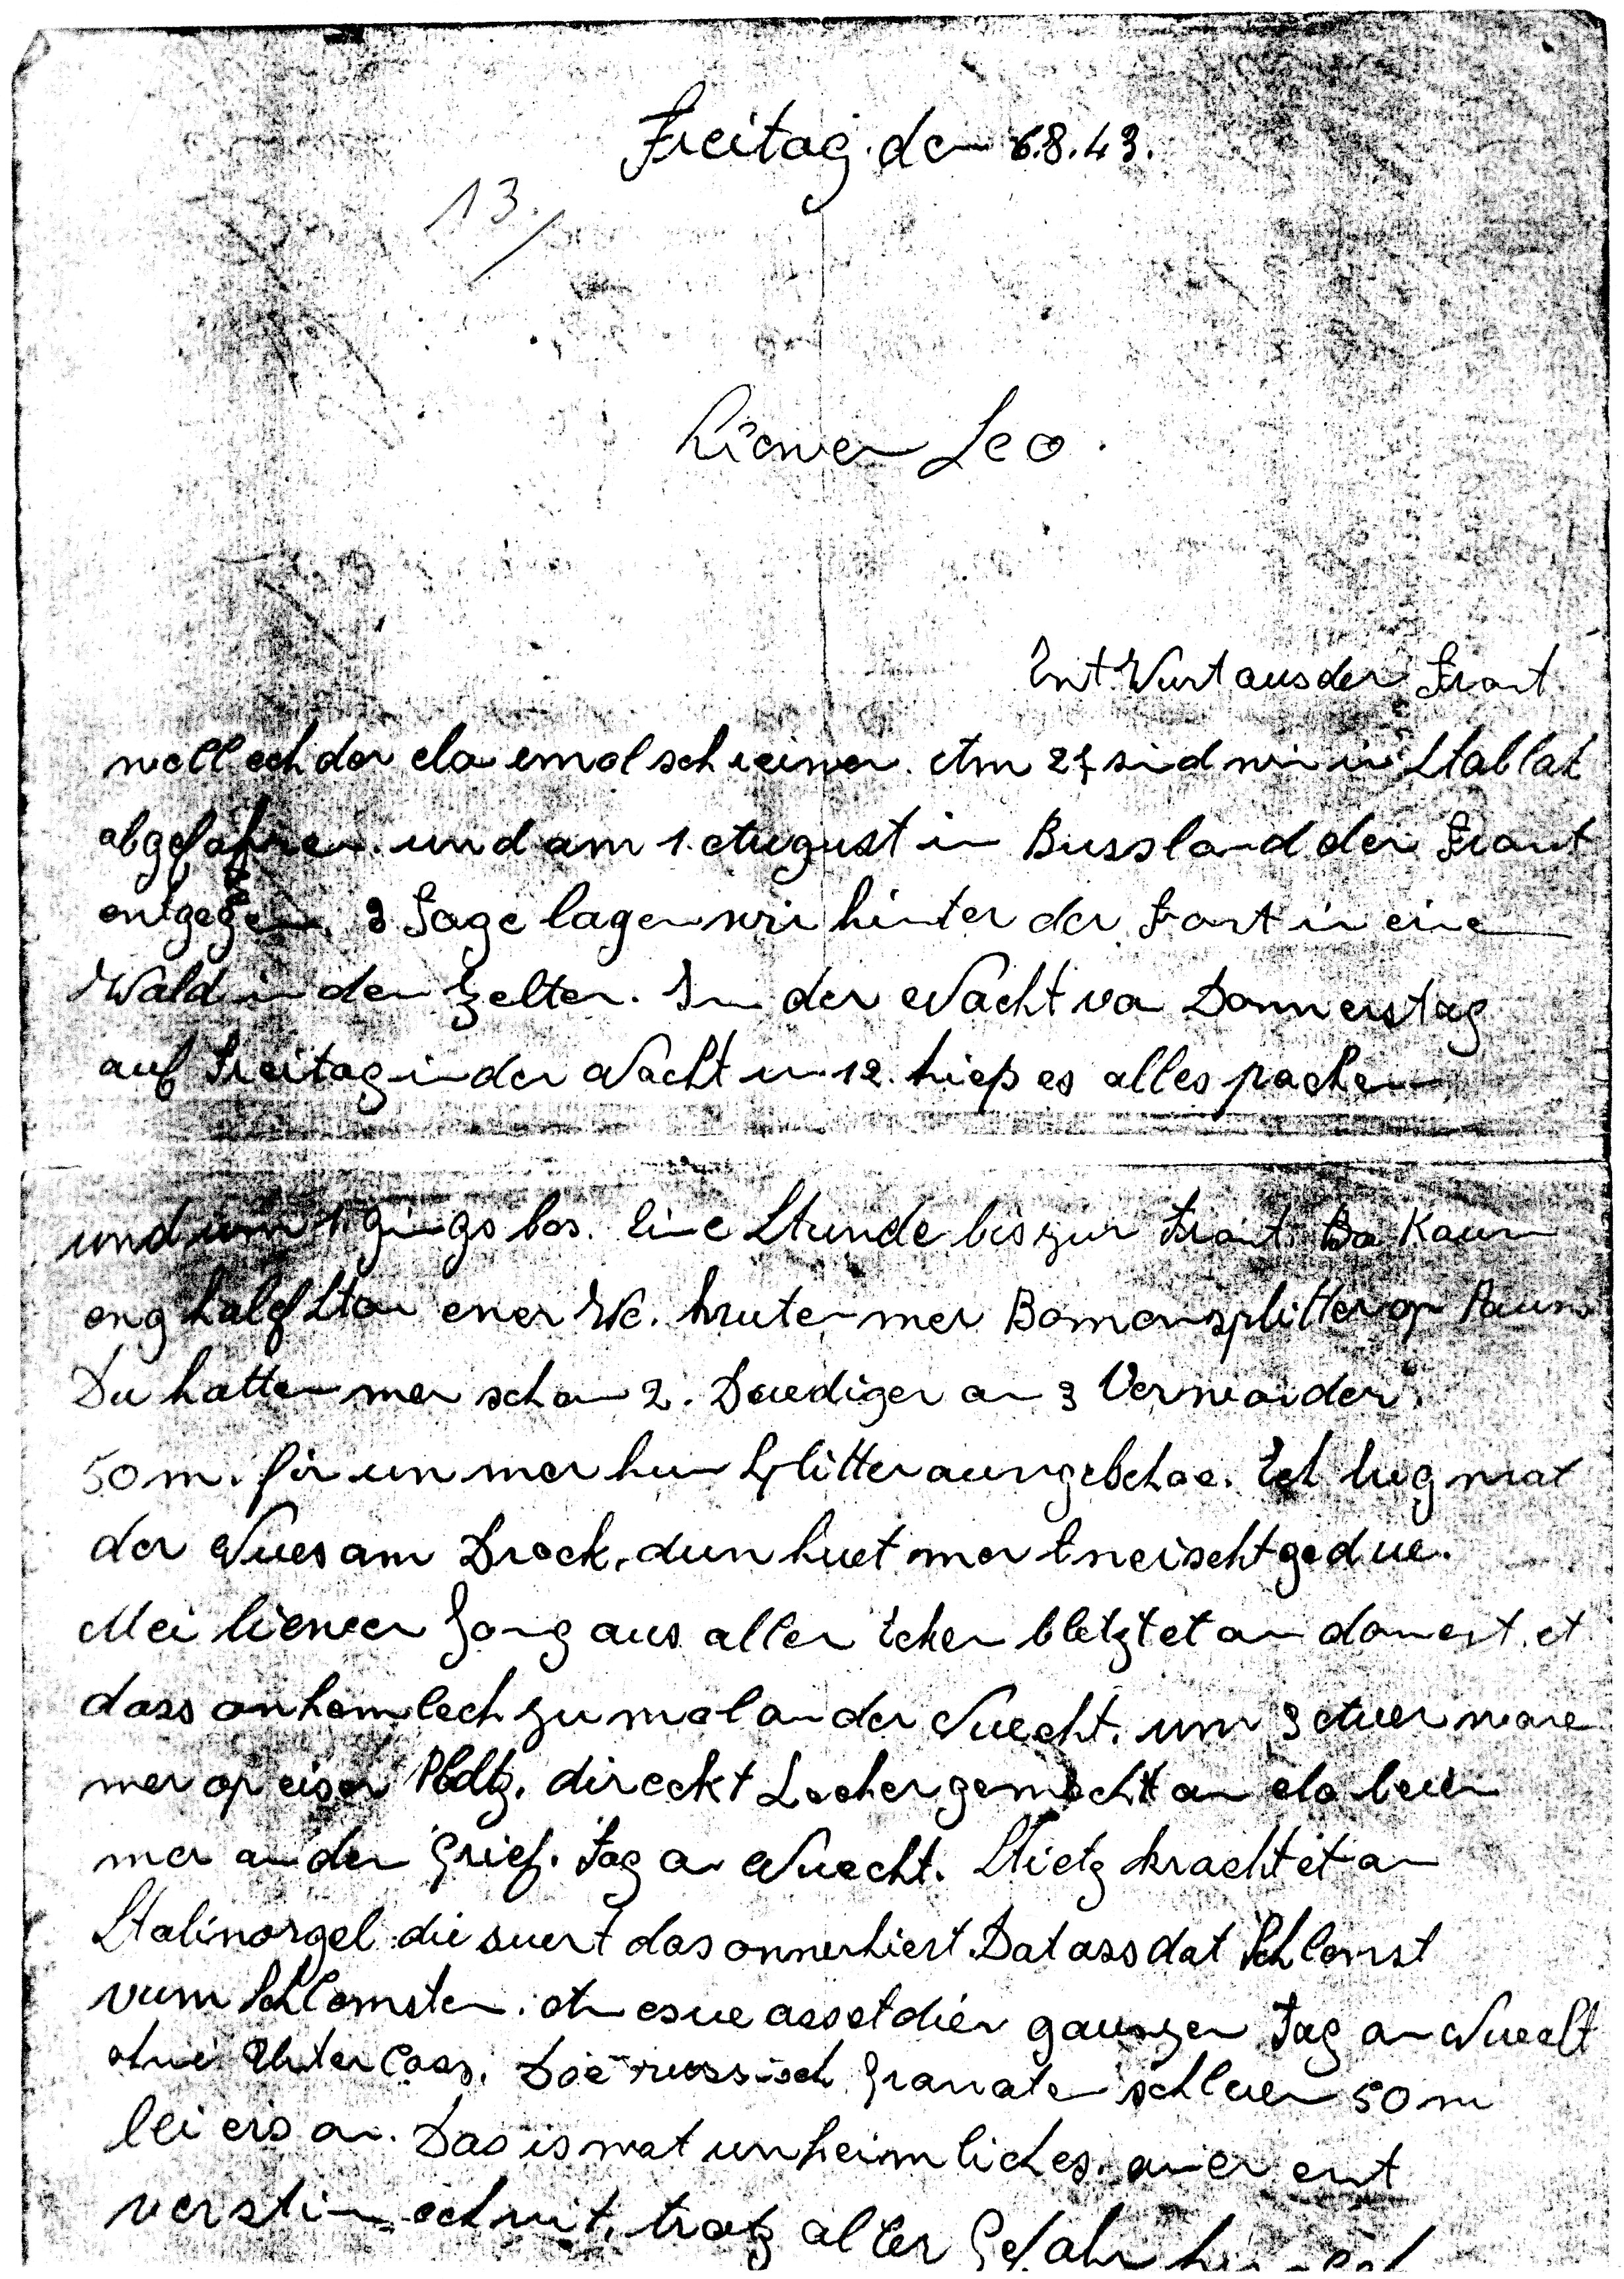 Freitag den 6.8.43.
13.
Liewen Leo.
Ent Wurt aus der Front
well ech der elo emol schreiwen. Am 27 sind wir in Stablak
abgefahren. und am 1. August in Russland der Front
entgegen. 3 Tage lagen wir hinter der Front in einem
Wald in den Zelten. In der Nacht von Donnerstag
auf Freitag in der Nacht um 12. hiess es alles packen
und um 1. gings los. Eine Stunde bis zur Front. Da kaum
eng halef Ston ener We. hruten mer Bomensplitter op
Du hatten mer schon 2. Doudiger an 3 Verwonder.
50 m. fir un mer hun Splitter
der Nues am Dreck, dun huet mer t neischt gedue.
Mei liewen Jong aus allen Ecken bletzt et an donnert, et
dass onhemlech zumol an der Nuecht. um 3 Auer ware
mer op eiser Platz. direckt Locher gemecht an elo leien
mer an den Grief. Tag an Nuecht. Stietz kracht et an
Stalinorgel die suert das onnerhiert. Dat ass dat Schlomst
vum Schlomsten. An esue asset dier ganzen Tag an Nuecht
ohne Unterlass. Doe russisch Granaten schloen 50 m
bei eis an. Das is wat unheimliches. awer ent
verstin ech nit, trotz aller Gefahr